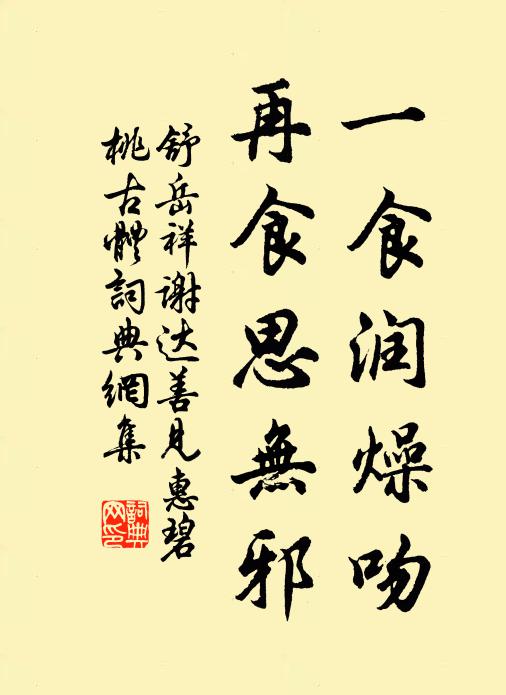 一食润燥吻
再食思無邪
舒岳祥谢达善见惠碧
桃古體詞典網集
詞典网印